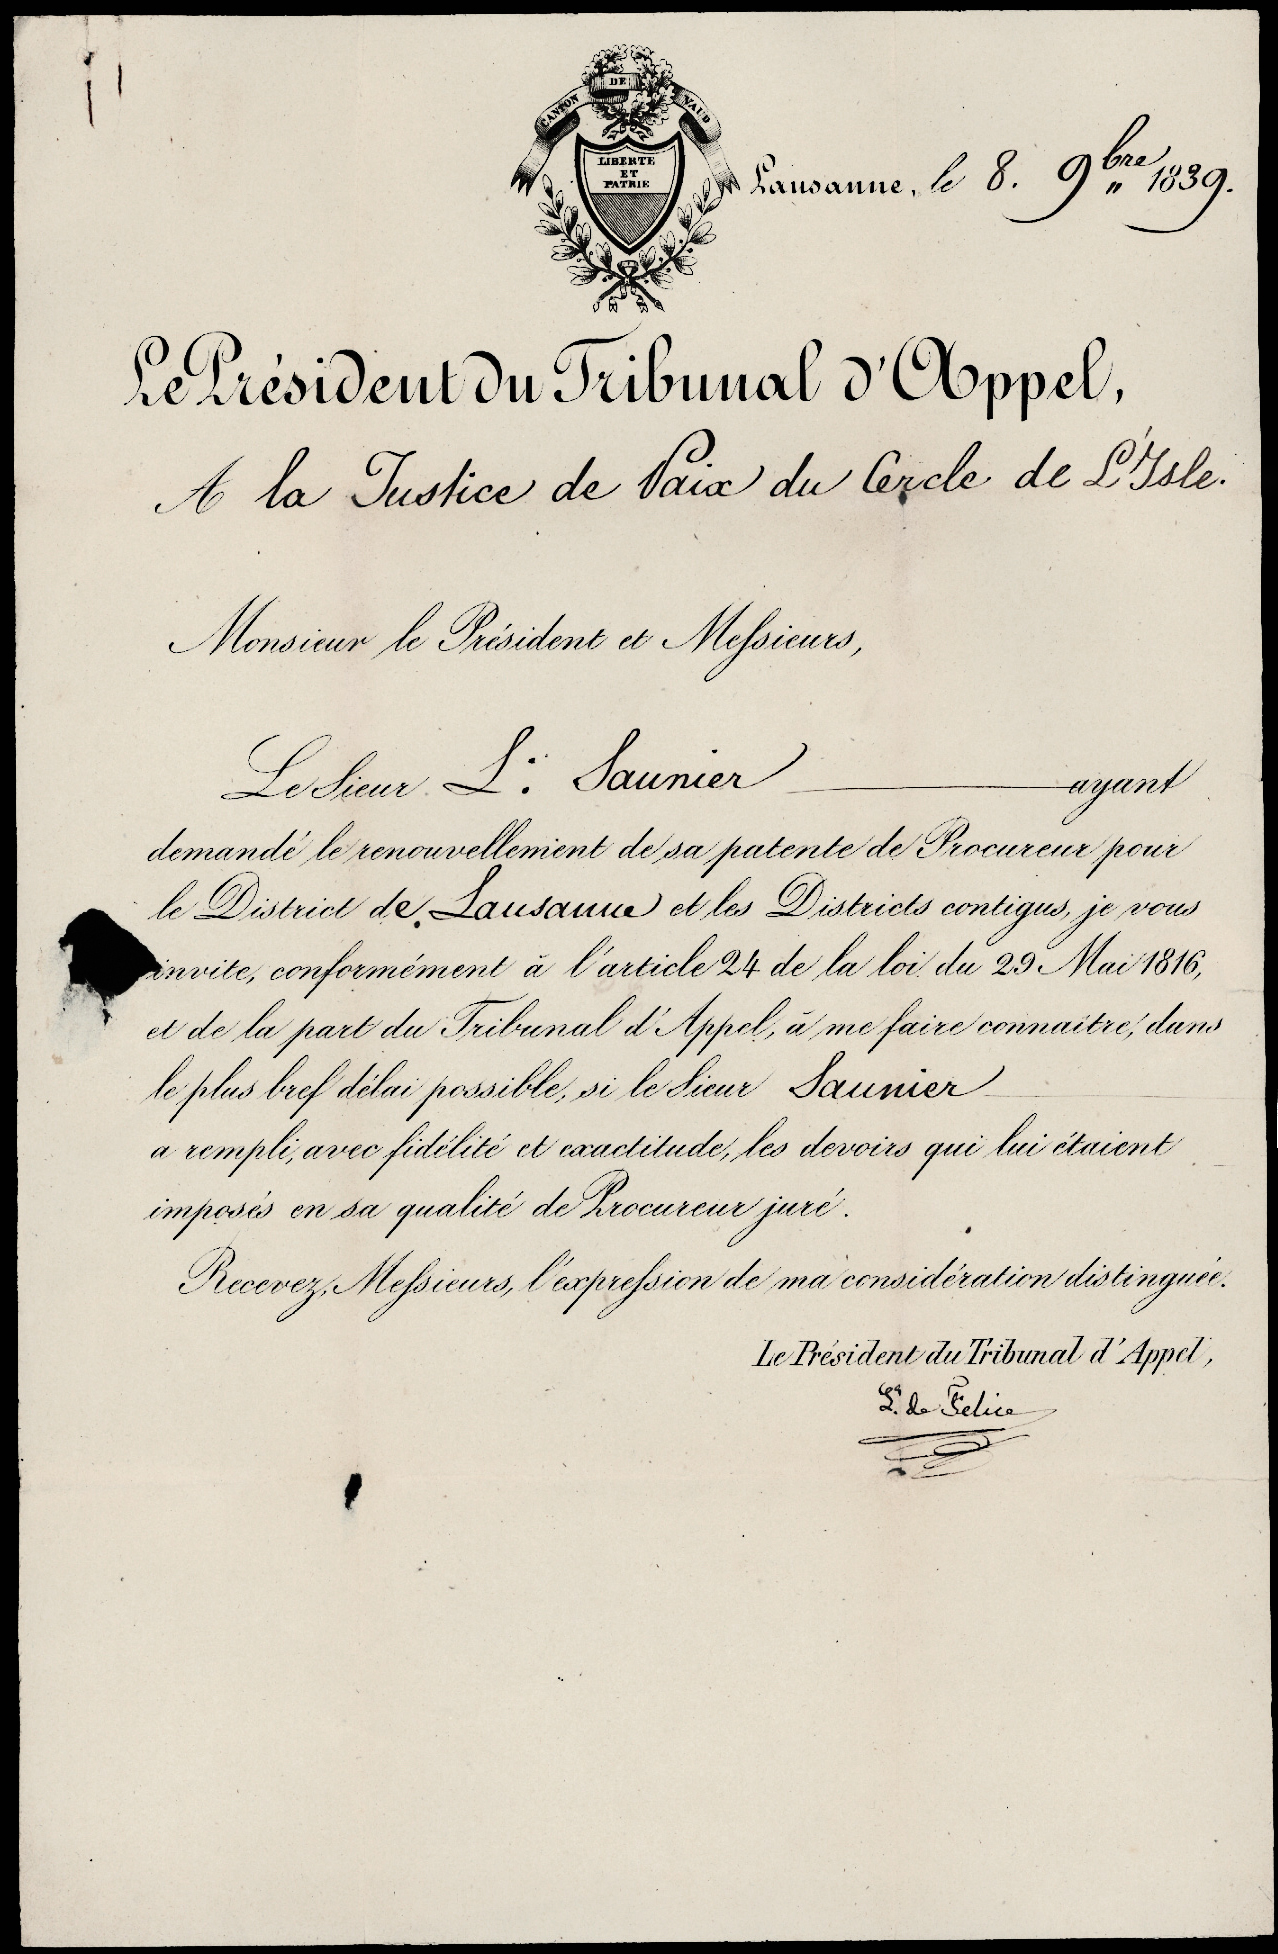 CANTON DE VAUD
LIBERTE
ET
PATRIE
Lausanne, le 8. 9bre 1839.
Le Président du Tribunal d'Appel,
A la Justice de Paix du Cercle de L'Isle.
Monsieur le Président et Messieurs,
Le Sieur L.s Saunier ayant
demandé le renouvellement de sa patente de Procureur pour
le District de Lausanne et les Districts contigus, je vous
invite, conformément à l'article 24 de la loi du 29 Mai 1816,
et de la part du Tribunal d'Appel, à me faire connaitre, dans
le plus bref délai possible, si le Sieur Saunier
a rempli, avec fidélité et exactitude, les devoirs qui lui étaient
imposés en sa qualité de Procureur juré.
Recevez, Messieurs, l'expression de ma considération distinguée.
Le Président du Tribunal d'Appel,
L.s de Felice